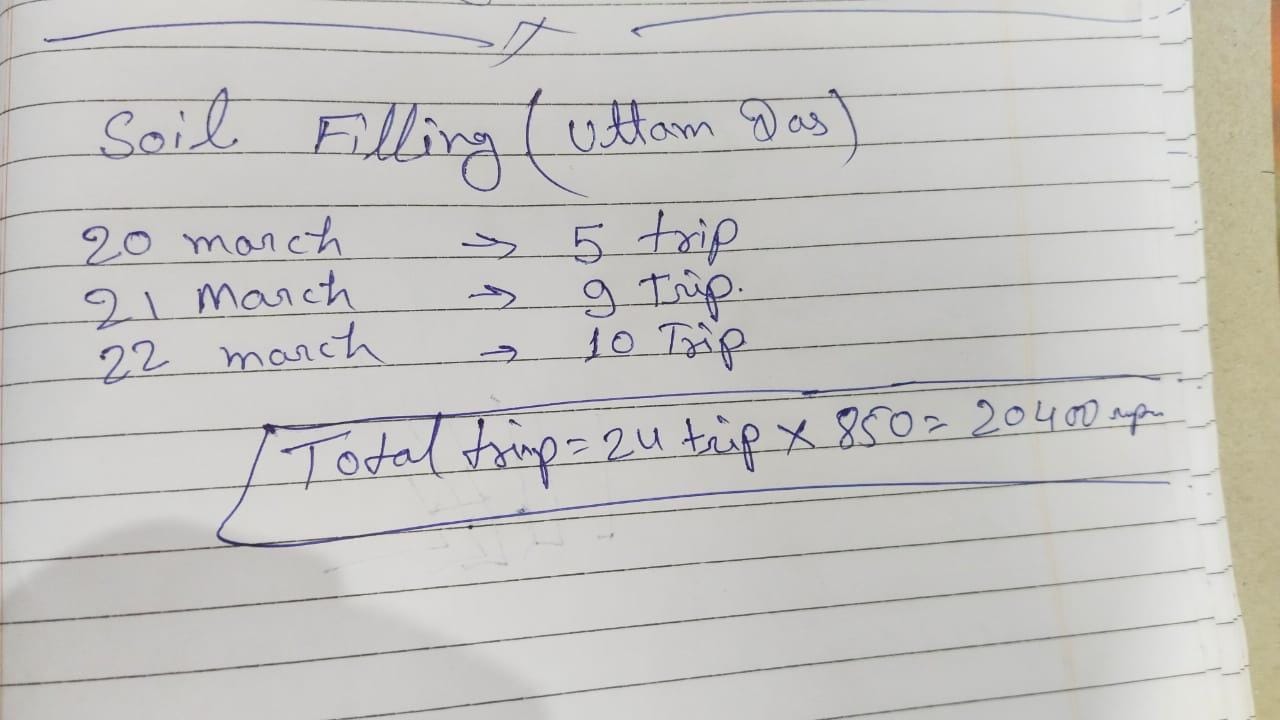 Soil Filling (Uttam Das)
20 march → 5 trip
21 March → 9 Trip.
22 march → 10 Trip
Total trip = 24 trip × 850 = 20400